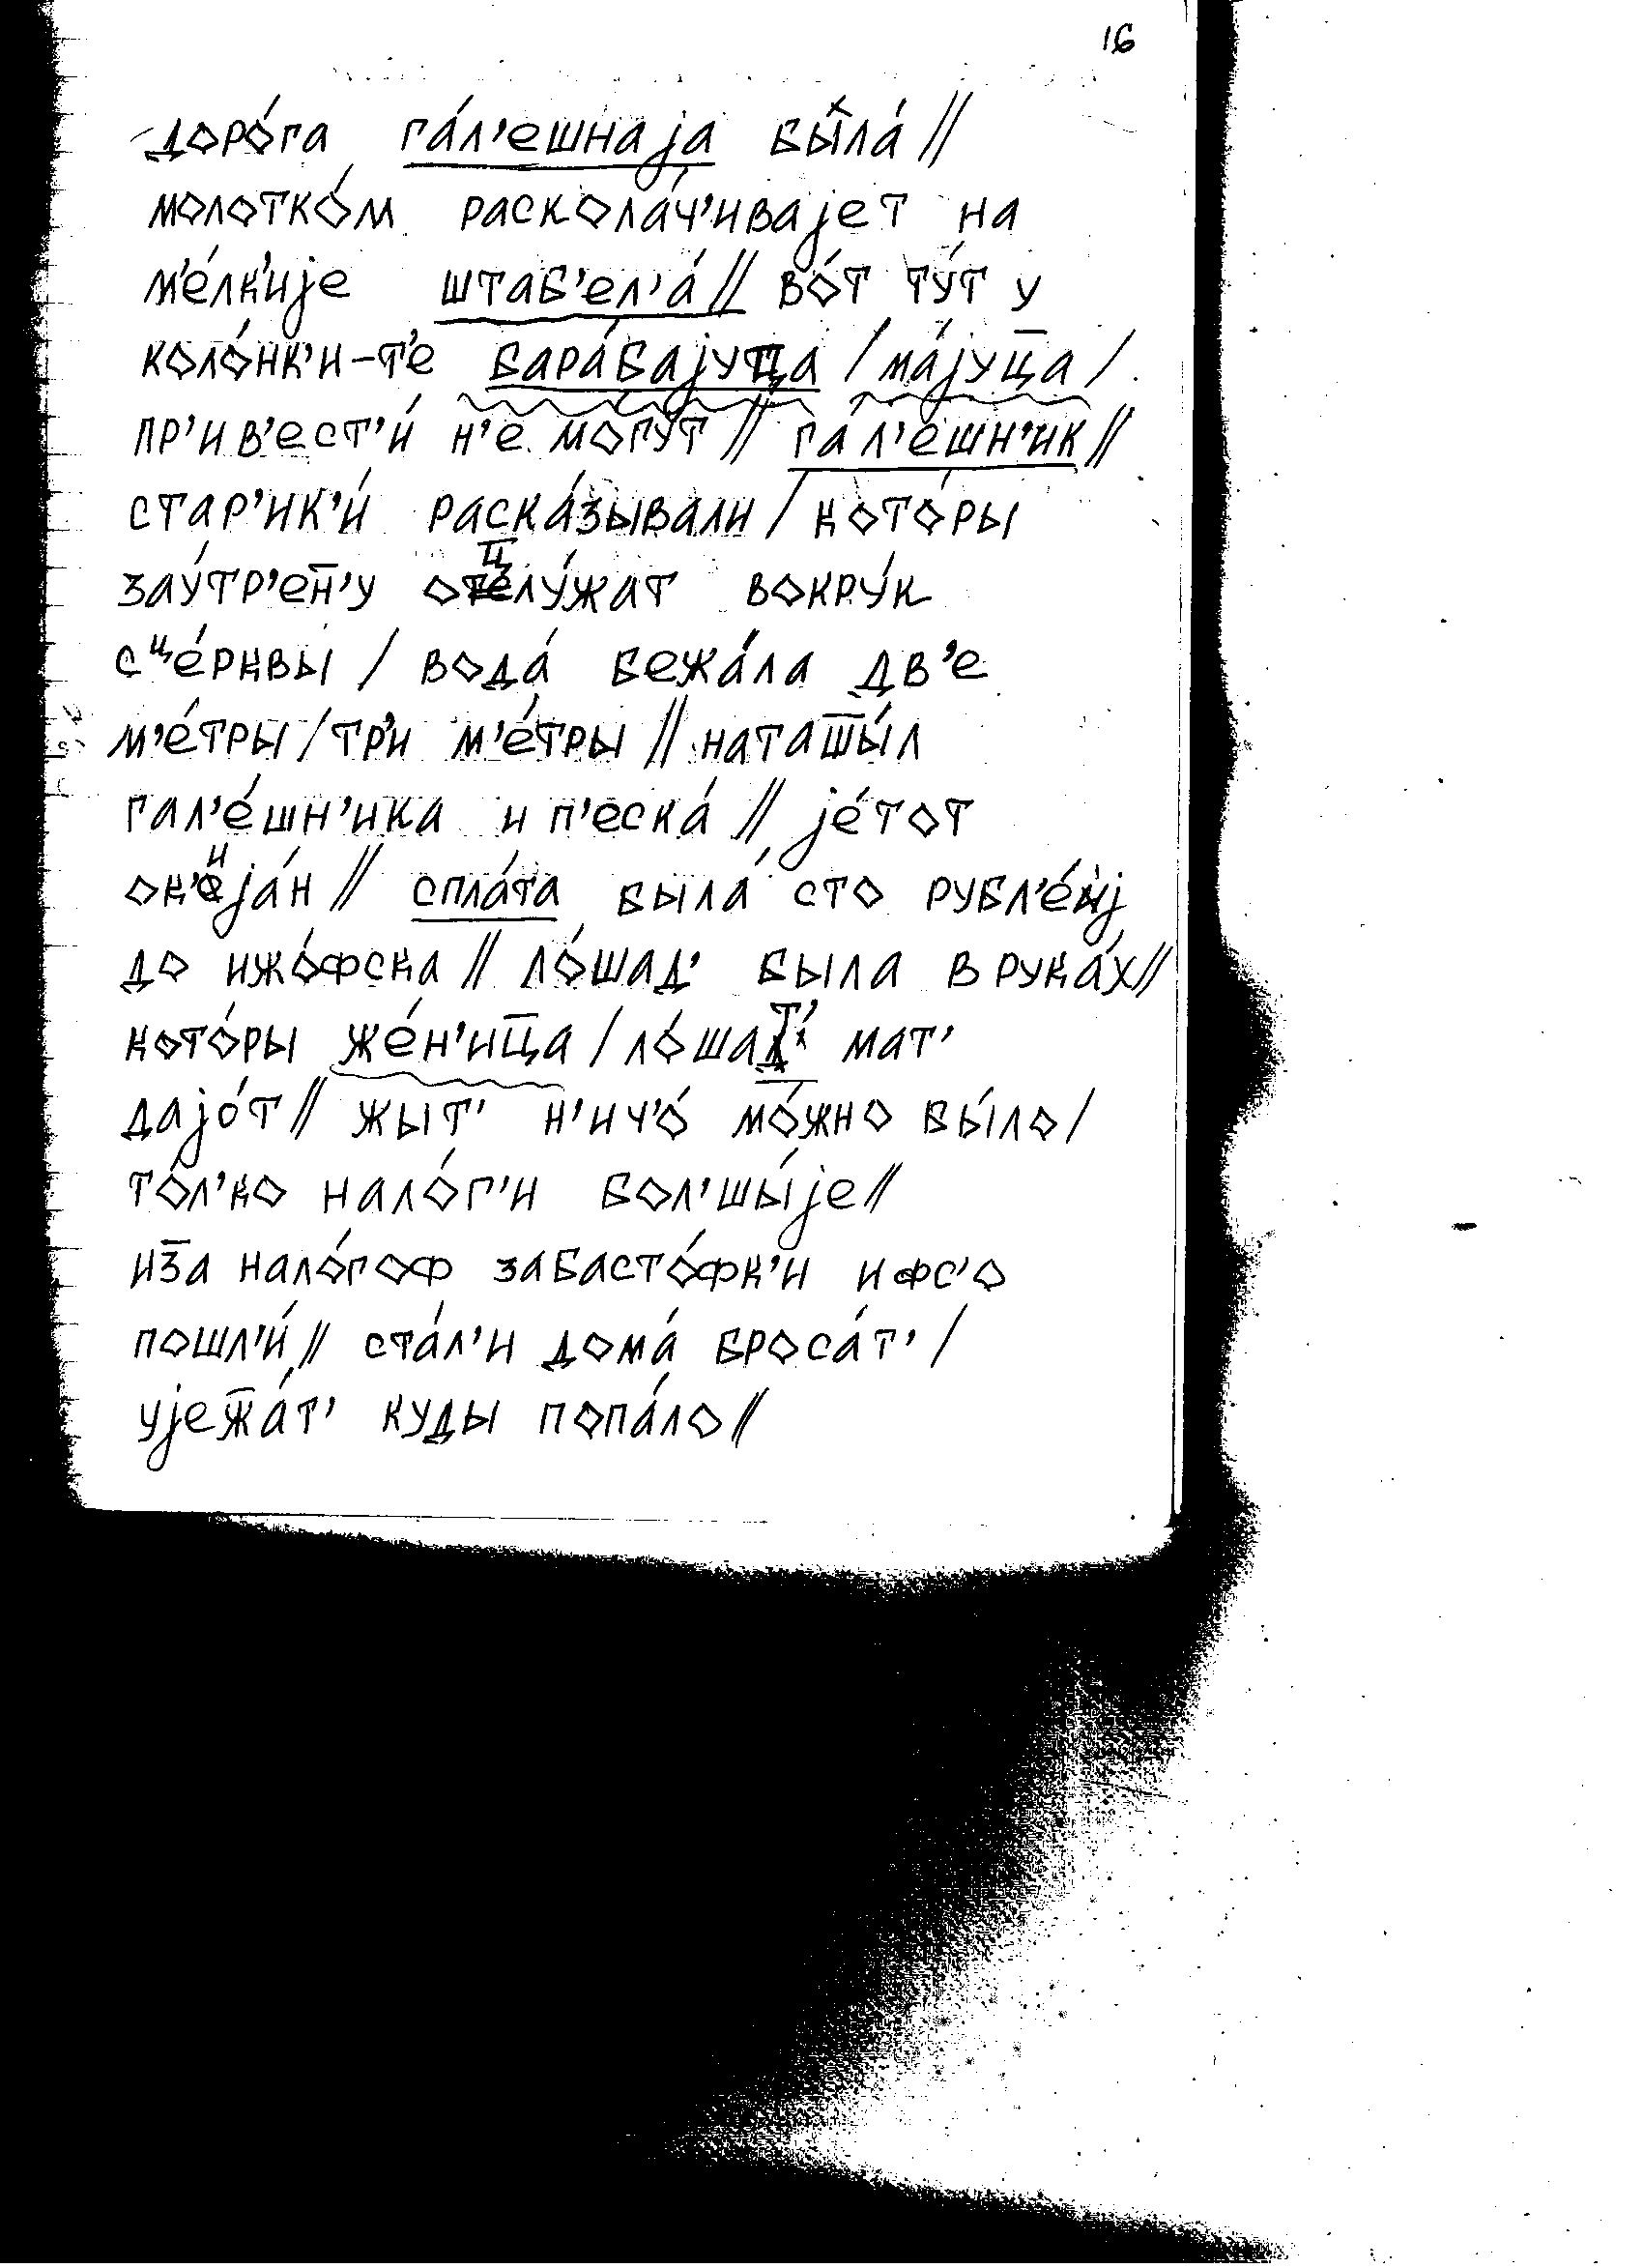 16
доро́га га́л'ешнаjа была́ //
молотко́м раскола́ч'иваjет на
м'е́лк'иjе штаб'ел'а́ // во́т ту́т у
коло́нк'и-т'е бара́баjуц̅а / ма́jуц̅а /
пр'ив'ест'и́ н'е могу́т // га́л'ешн'ик //
стар'ик'и́ раска́зывали / кото́ры
зау́тр'ен̅'у оц̅лу́жат вокру́к
сце́рквы / вода́ бежа́ла дв'е
м'е́тры / тр'и м'е́тры // наташ̅ы́л
гал'е́шн'ика и п'еска́ // jе́тот
ок'иjа́н // спла́та была́ сто рубл'е́j
до ижо́фска // ло́шад' была в рука́х //
кото́ры же́н'иц̅а / ло́шат' мат'
даjо́т // жыт' н'ич'о́ мо́жно бы́ло /
то́л'ко нало́г'и бол'шы́jе //
из̅а нало́гоф забасто́фк'и и фс'о
пошл'и́ // ста́л'и дома́ броса́т' /
уjеж̅а́т' куды попа́ло //